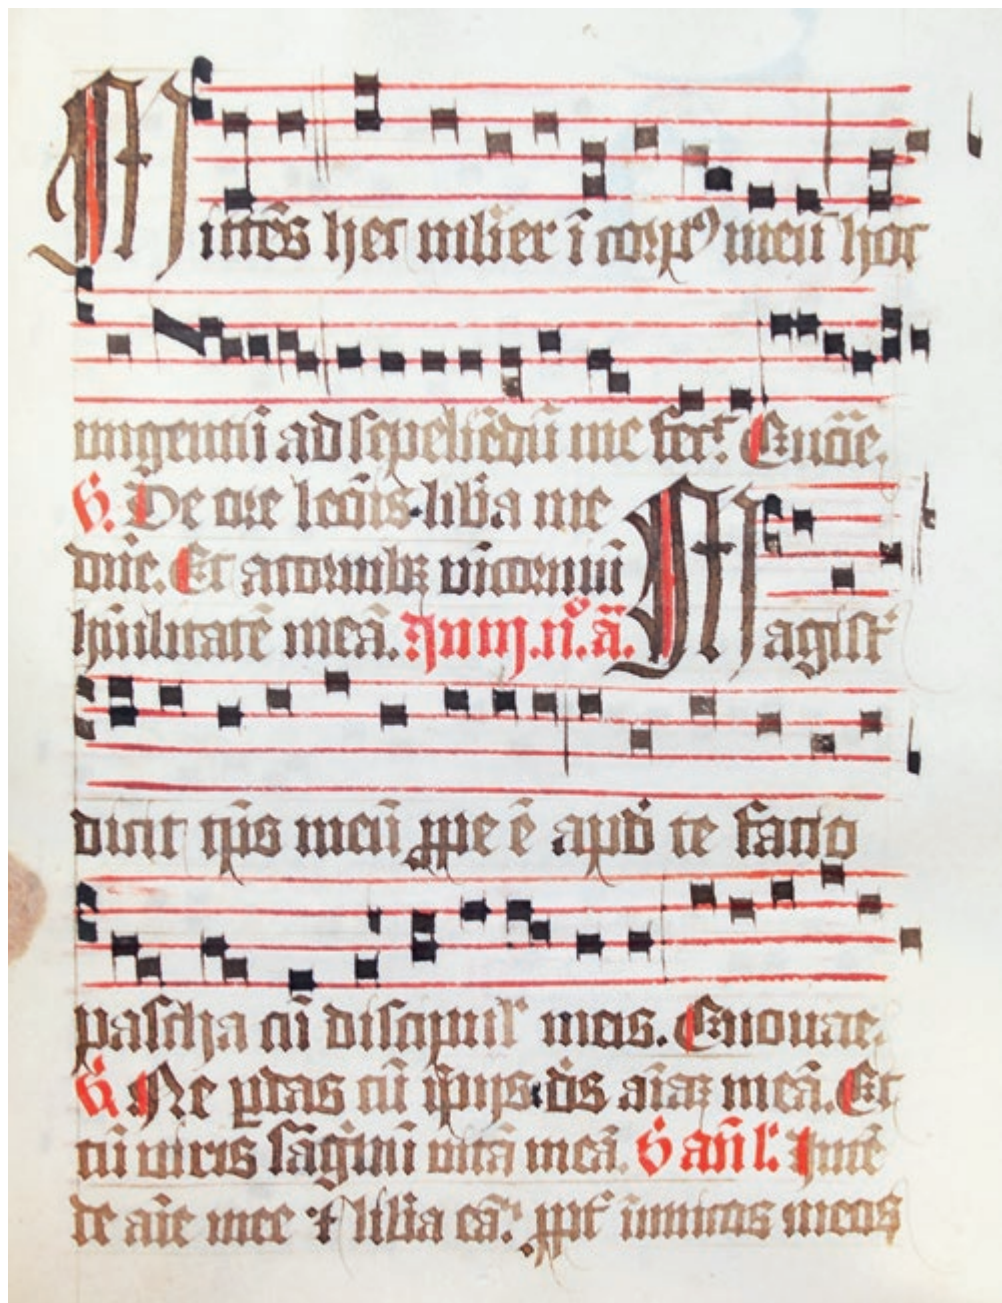 Mittēs hec mulier ī corpꝰ meū hoc
ungentū ad sepeliēdū me fecᵗ. Euoāe.
V. De ore leōis libīa me
dn̄e. Et a cornibꝫ vnicorniū
hūilitatē meā. M
agistʳ
dicit tp̄s meū ꝓpe ē apd̄ te facio
pascha cū discipulˢ meis. Euouae.
V. Ne ꝑdas cū īpijs dˢ aīaꝫ meā. Et
cū viris sāgīnū vitā meā. V Intē
de aīe mee ⁊ libīa eā. ꝓptʳ inimicos meos